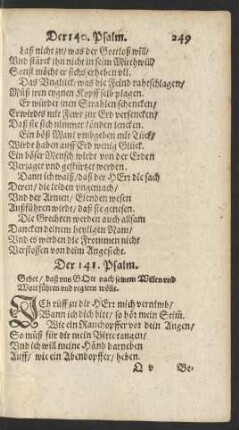 Der 140. Psalm. 249
Laß nicht zu/ was der Gottloß will/
Und stärck ihn nicht in seim Muthwill/
Sonst möcht er sichs erheben vil.
Das Unglück/ was die Feind rahtschlagen/
Müß iren eygnen Kopff selb plagen.
Er würdt inen Strahlen schencken/
Er würdts mit Fewr zur Erd versencken/
Daß sie sich nimmer könden lencken.
Ein böß Maul umbgeben mit Tück/
Wirdt haben auff Erd wenig Glück.
Ein böser Mensch wirdt von der Erden
Verjagt und gestürtzet werden.
Dann ich waiß/ daß der HErr die sach
Deren/ die leiden ungemach/
Und der Armen/ Elenden wesen
Außführen wirdt/ daß sie genesen.
Die Grechten werden auch allsam
Dancken deinem heyligen Nam/
Und es werden die Frommen nicht
Verstossen von deim Angesicht.
Der 141. Psalm.
Gebet/ daß uns Gott nach seinem Willen und
Wort führen und regiern wölle.
ICh rüff zu dir HErr mich vernimb/
Wann ich dich bitt/ so hör mein Stim̃.
Wie ein Rauchopffer vor dein Augen/
So müß für dir mein Bitte taugen/
Und ich will meine Händ darneben
Auff/ wie ein Abendopffer/ heben.
Q v Be-